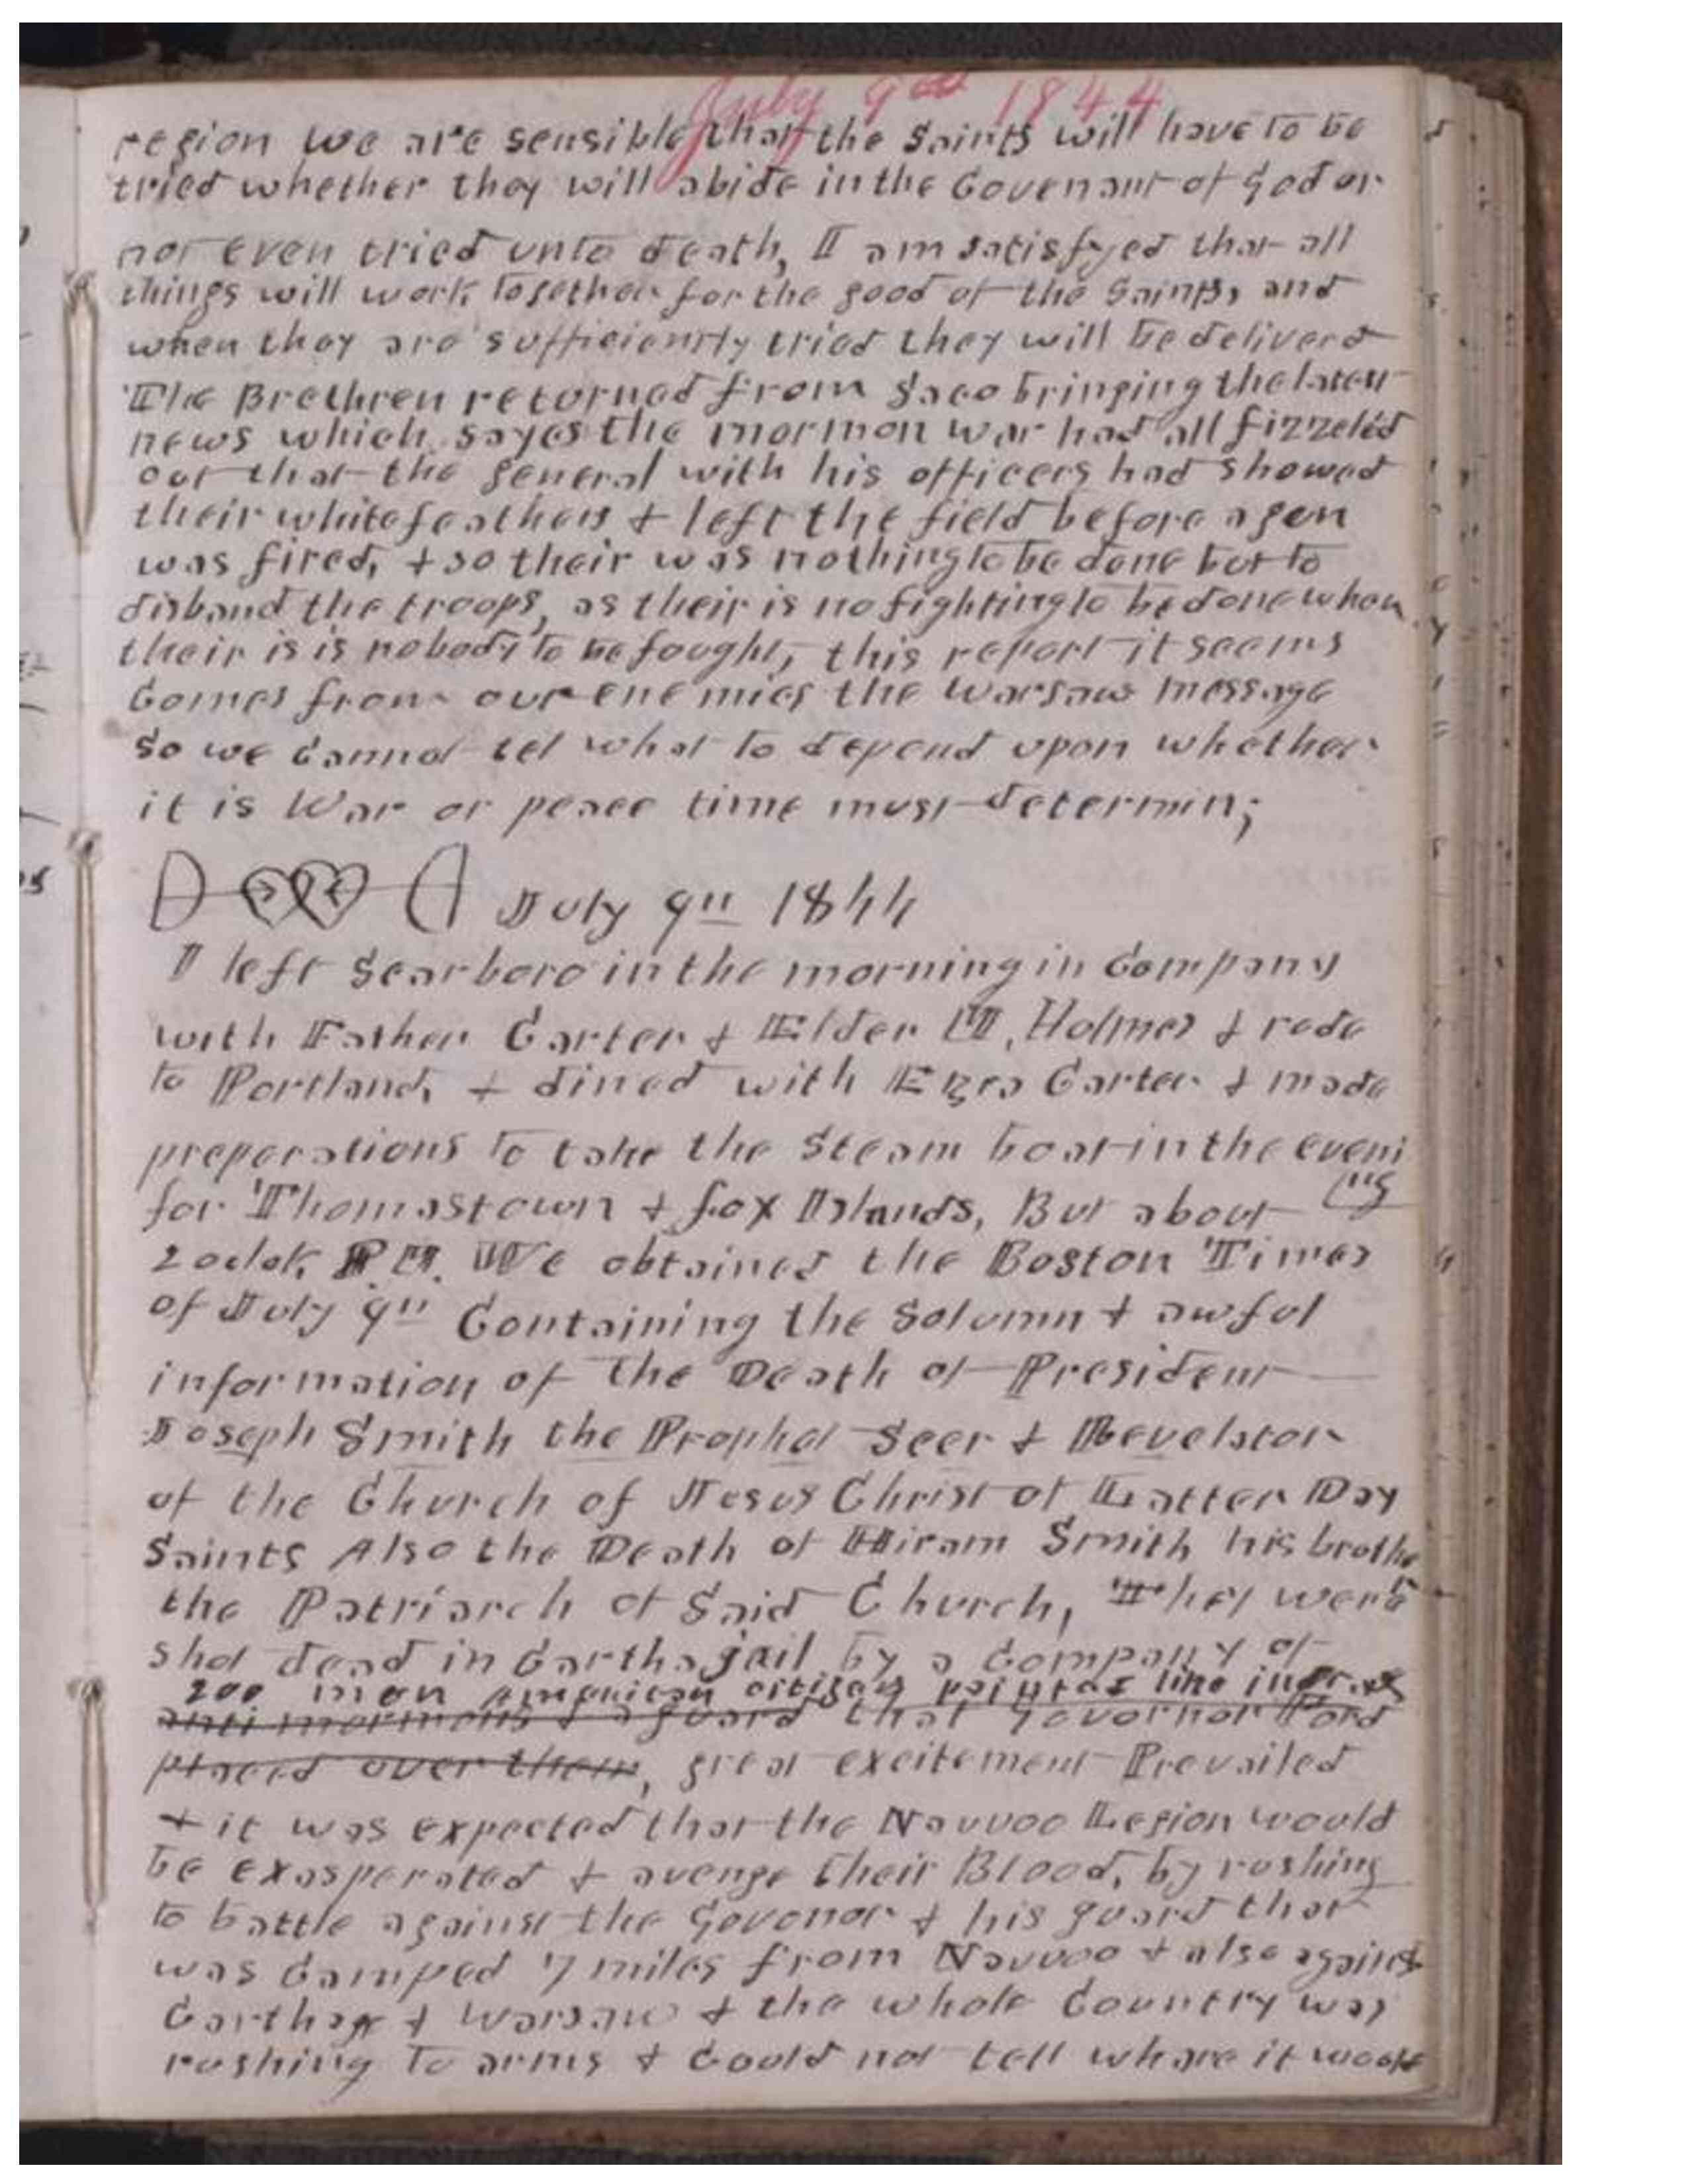 July 9th 1844
region we are sensible that the Saints will have to be
tried whether they will abide in the Covenant of God or
not even tried unto death, I am satisfyed that all
things will work together for the good of the Saints, and
when they are sufficiently tried they will be deliverd
The Brethren returned from Saco bringing the latest
news which sayes the mormon war had all fizzeled
out that the general with his officers had showed
their white feathers & left the field before a gun
was fired, & so their was nothing to be done but to
disband the troops, as their is no fighting to be done when
their is is nobody to be fought, this report it seems
comes from our enemies the Warsaw message
so we cannot tel what to depend upon whether
it is War or peace time must determin;
July 9th 1844
I left Scarboro in the morning in company
with Father Carter & Elder M, Holmes & rode
to Portland, & dined with Ezra Carter & made
preperations to take the Steam boat in the eveni
ng
for Thomastown & fox Islands, But about
2 oclok, P.M. We obtained the Boston Times
of July 9th Containing the Solumn & awful
information of the Death of President
Joseph Smith the Prophet Seer & Revelator
of the Church of Jesus Christ of Latter Day
Saints Also the Death of Hiram Smith his brothe
the Patriarch of Said Church, They were
shot dead in Cartha jail by a company of
200 men American citizens painted like
anti mormons & a guard that Governor Ford
placed over them, great excitement Prevailed
& it was expected that the Nauvoo Legion would
be exasperated & avenge their Blood, by rushing
to battle against the Govonor & his guard that
was camped 7 miles from Nauvoo & also against
Carthage & Warsaw & the whole Country was
rushing to arms & could not tell whare it would